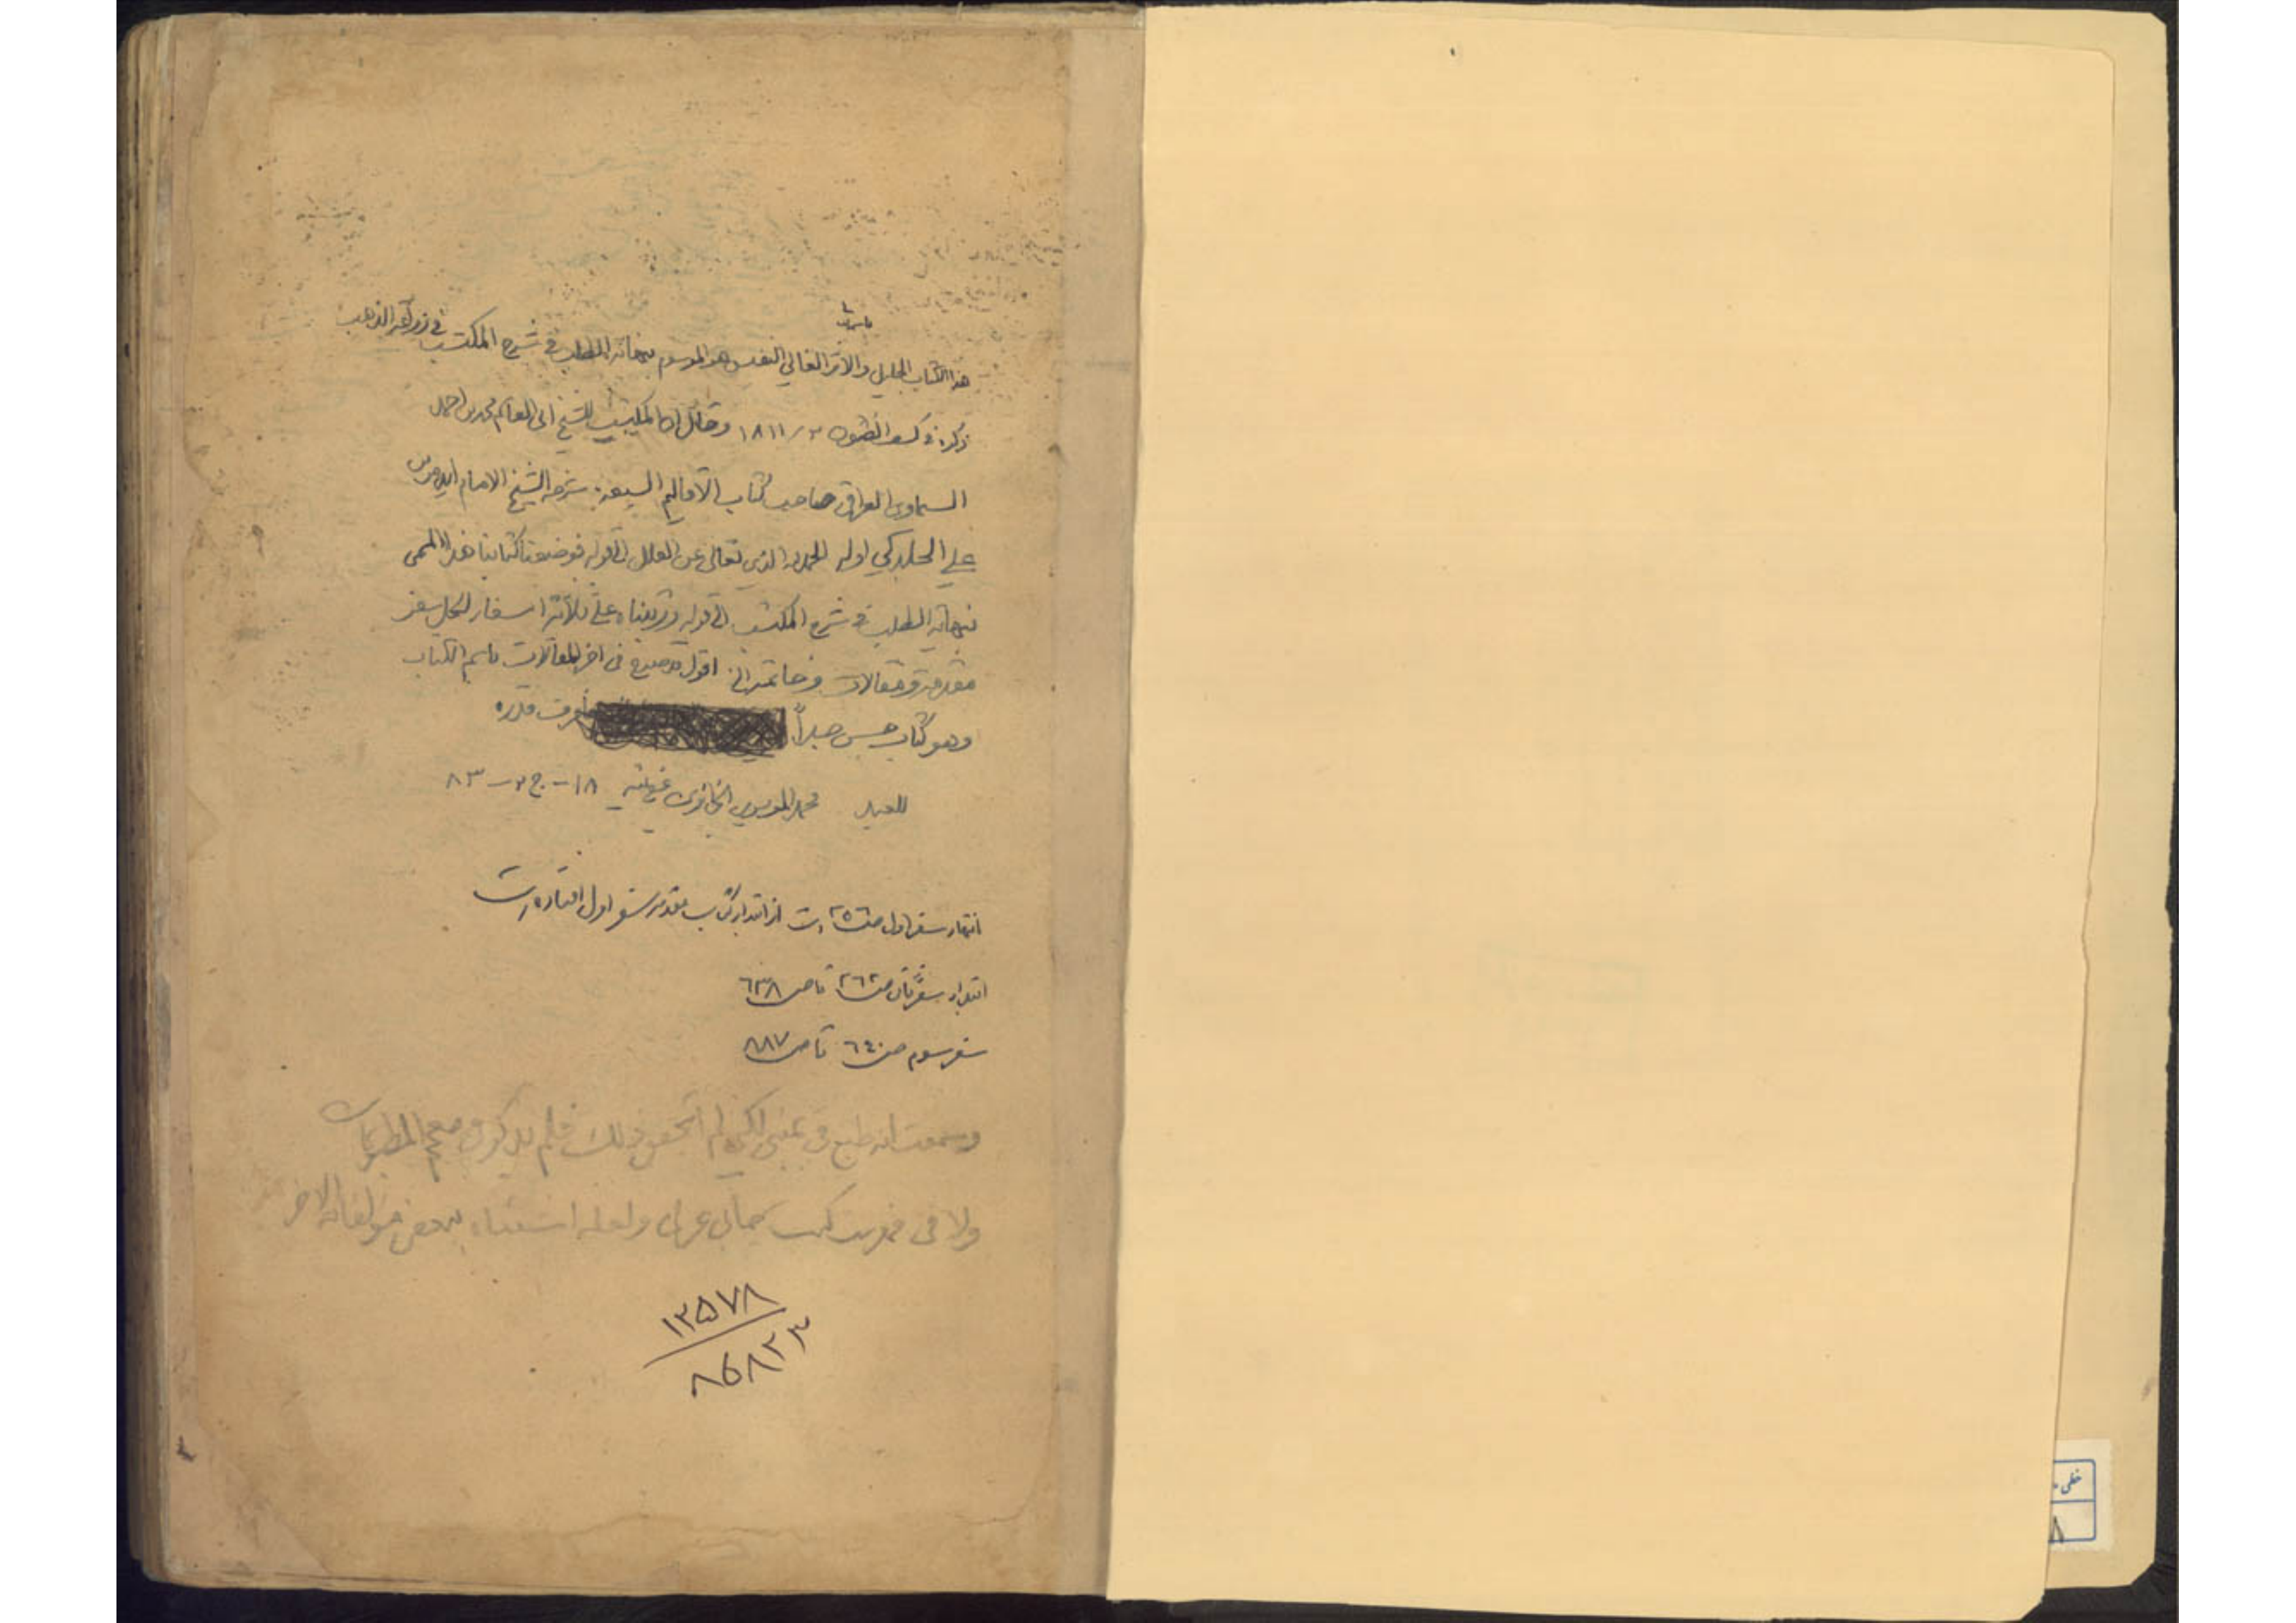 باسمه تعالی
هذا الكتاب الجليل والاثر الغالي النفيس هو الموسوم بنهاية الطلب في شرح المكتسب في زراعة الذهب
ذكره في كشف الظنون ٢/١٨١١ وقال ان المكتسب للشيخ ابى القاسم محمد بن احمد
السماوى العراقى صاحب كتاب الأقاليم السبعة. شرحه الشيخ الامام ايدمر بن
علي الجلدكي اوله الحمد لله الذي تعالى عن العلل الى قوله فوضعنا كتابنا هذا المسمى
نهاية الطلب في شرح المكتسب الى قوله ورتبناه على ثلاثة اسفار لكل سفر
مقدمة ومقالات وخاتمة الخ. اقول وصرح في اخر المقالات باسم الكتاب
وهو كتاب حسن جداً. فاعرف قدره
للعبد محمد الموسوي عفى عنه ١٨ - ج ٢ - ٨٣
انتهاء سفر اول ص ٢٥٦ است از ابتداء كتاب مقدمه سفر اول افتاده است
ابتداء سفر ثانى ص ٢٦٢ تا ص ٦٣٨
سفر سوم ص ٦٤٠ تا ص ٨٨٧
وسمعت انه طبع في بمبئى لكني لم اتحقق ذلك فلم يذكر في معجم المطبوعات
ولا فى فهرست كتب چاپى عربى ولعله اشتباه ببعض مؤلفاته الاخر
١٣٥٧٨
٨٦٨٢٣
خطی
٨